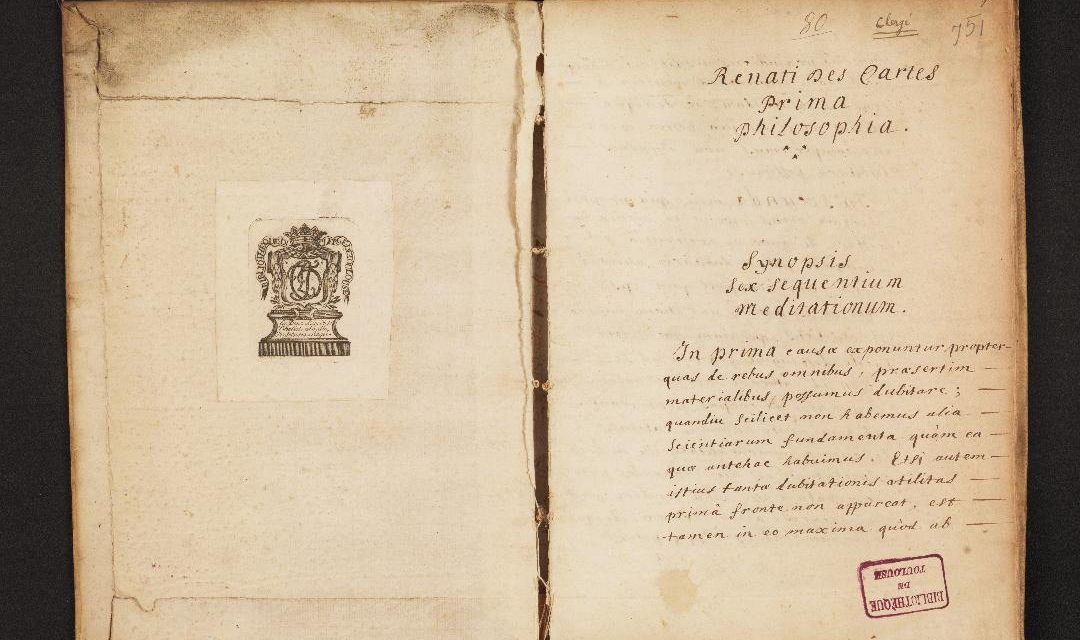 80
Clergé
751
Renati Des Cartes
Prima
philosophia.
Synopsis
sex sequentium
meditationum.
In prima causæ exponuntur propter
quas de rebus omnibus, præsertim
materialibus, possumus dubitare;
quandiu scilicet non habemus alia
scientiarum fundamenta quàm ea
quæ antehac habuimus. Etsi autem
istius tantæ dubitationis utilitas
primâ fronte non appareat, est
tamen in eo maxima quòd ab
BIBLIOTHÈQUE
DE
TOULOUSE